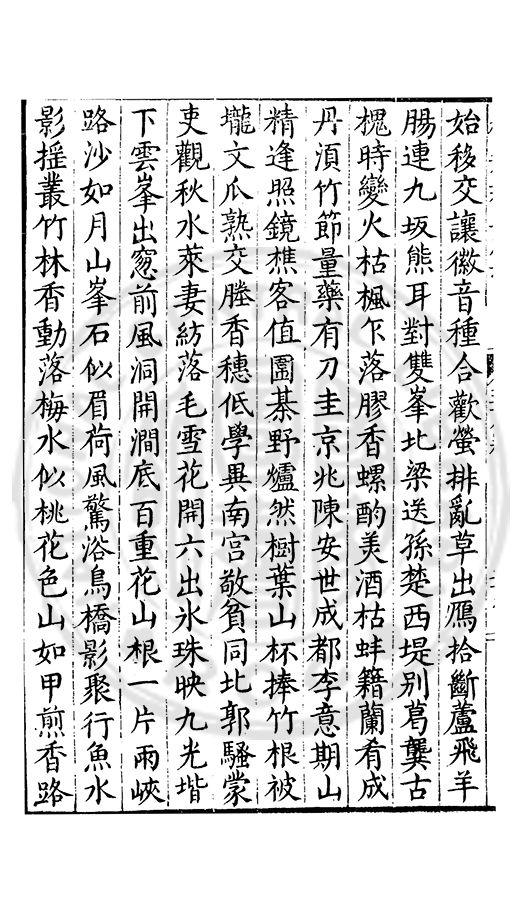 始移交讓徽音種合歡螢排亂草出鴈拾斷蘆飛羊
腸連九坂熊耳對雙峯北梁送孫楚西堤別葛龔古
槐時變火枯楓乍落膠香螺酌美酒枯蚌籍蘭肴成
丹須竹節量藥有刀圭京兆陳安世成都李意期山
精逢照鏡樵客值圍棊野爐然樹葉山杯捧竹根被
壠文瓜熟交塍香穗低學異南宫敬貧同北郭騷蒙
吏觀秋水萊妻紡落毛雪花開六出氷珠映九光堦
下雲峯出窓前風洞開澗底百重花山根一片雨峽
路沙如月山峯石似眉荷風驚浴鳥橋影聚行魚水
影搖叢竹林香動落梅水似桃花色山如甲煎香路